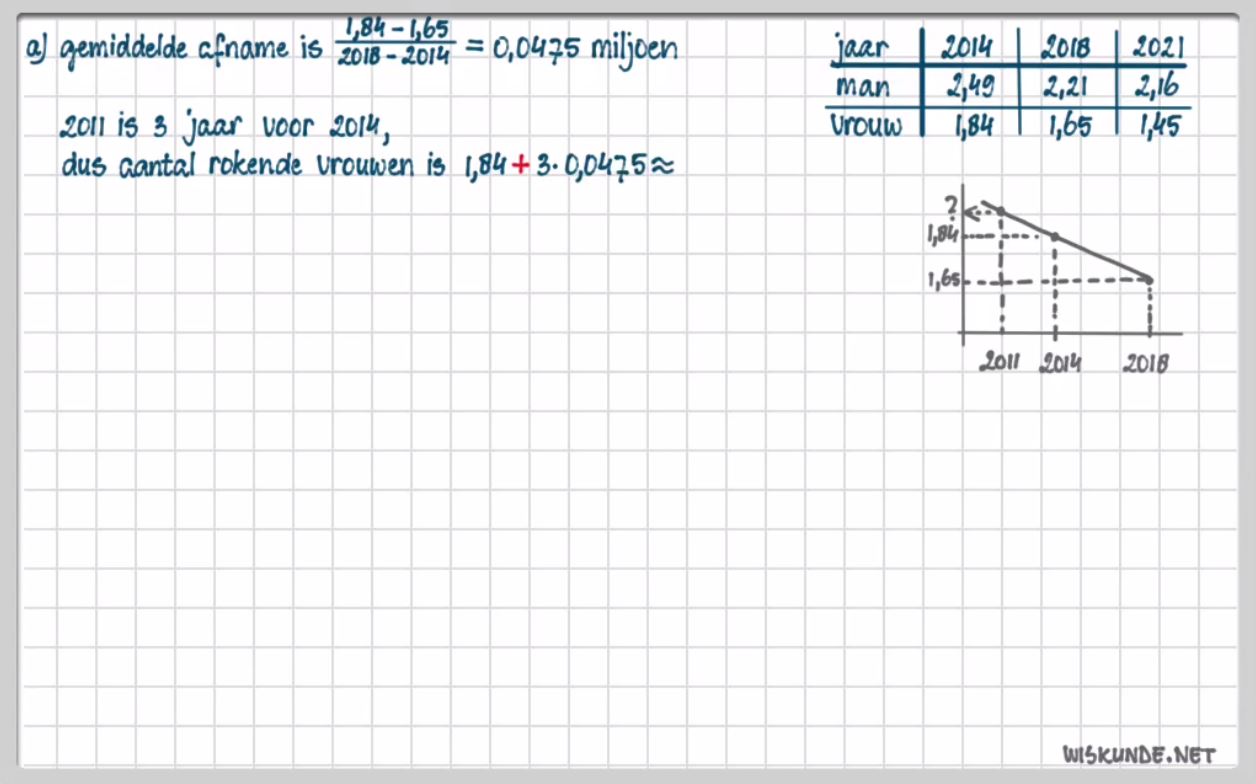 a) gemiddelde afname is (1,84 - 1,65)/(2018 - 2014) = 0,0475 miljoen
2011 is 3 jaar voor 2014,
dus aantal rokende vrouwen is 1,84 + 3 · 0,0475 ≈
jaar 2014 2018 2021
man 2,49 2,21 2,16
vrouw 1,84 1,65 1,45
?
1,84
1,65
2011 2014 2018
WISKUNDE.NET